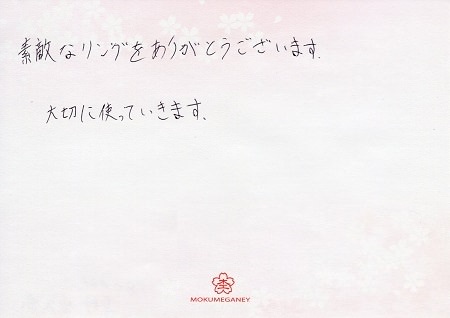 素敵なリングをありがとうございます.
大切に使っていきます.
MOKUMEGANEY